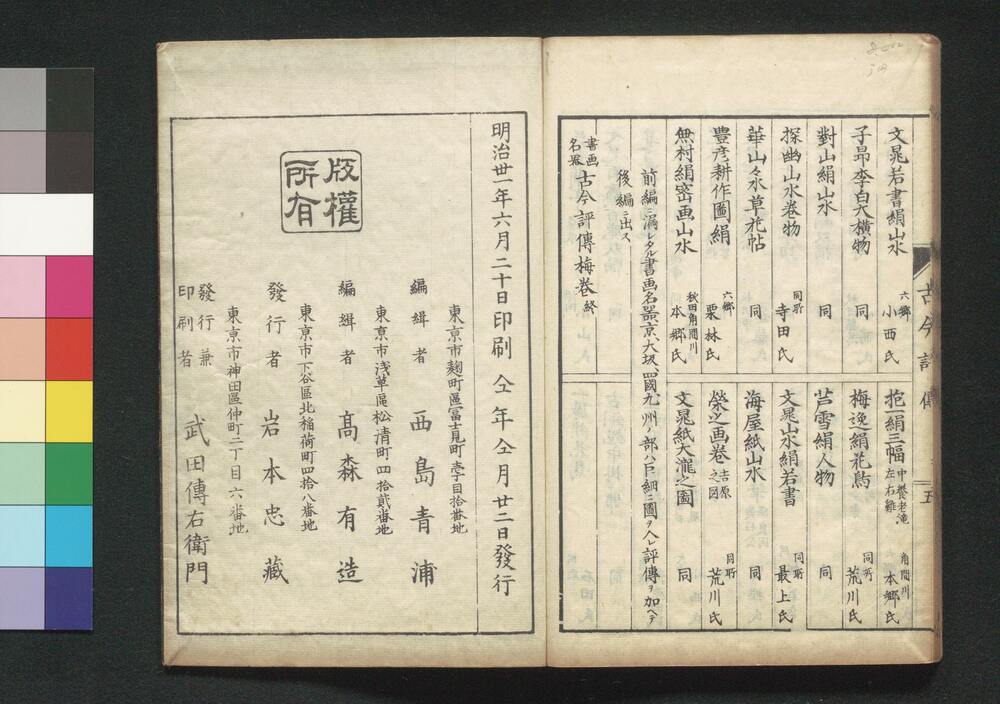 文晁若書絹山水 六郷 小西氏
子昂李白大横物 同
對山絹山水 同
探幽山水巻物 同所 寺田氏
華山々水草花帖 同
豊彦耕作圖絹 六郷 栗林氏
蕪村絹密画山水 秋田角間川 本郷氏
抱一絹三幅 中養老滝 左右雞 角間川 本郷氏
梅逸絹花鳥 同所 荒川氏
芦雪絹人物 同
文晁山水絹若書 同所 最上氏
海屋紙山水 同
榮之画巻 吉原之図 同所 荒川氏
文晁紙大瀧之圖 同
前編ニ漏レタル書画名器京大坂、四國九州ノ部ハ巨細ニ圖ヲ入レ評傳ヲ加ヘテ
後編ニ出ス
書画名器 古今評傳梅巻 終
古今評傳
五
明治丗一年六月二十日印刷 仝年仝月廿二日發行
版權所有
東京市麹町區冨士見町壱丁目拾番地
編緝者 西島青浦
東京市浅草區松清町四拾貳番地
編緝者 髙森有造
東京市下谷區北稲荷町四拾八番地
發行者 岩本忠藏
東京市神田區仲町二丁目六番地
發行兼印刷者 武田傳右衛門